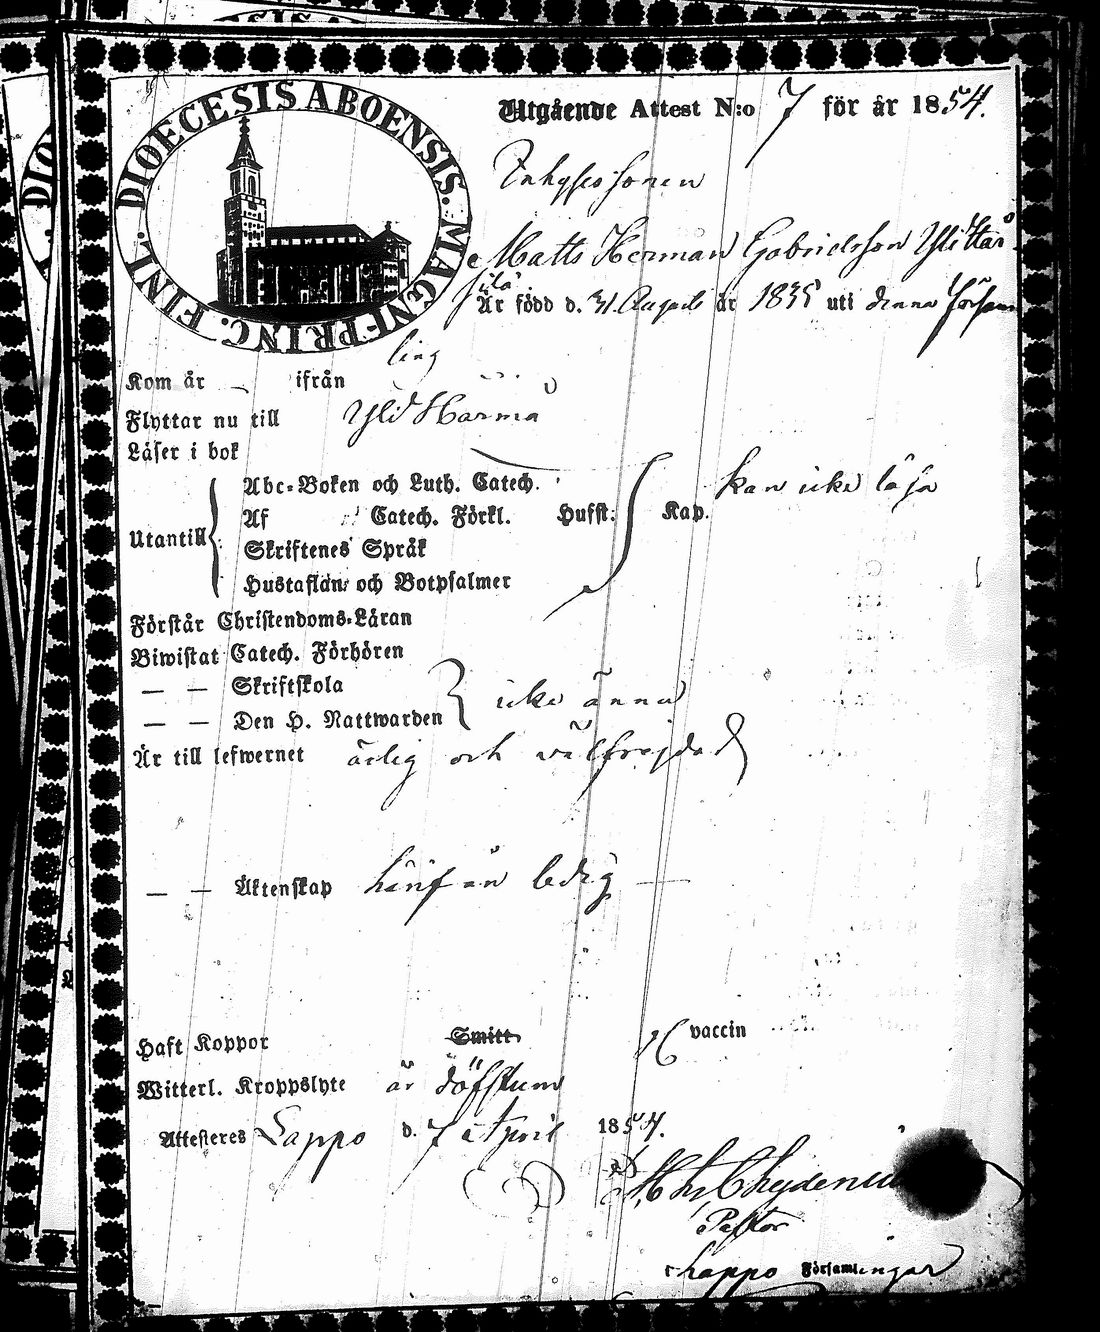 DIOECESIS ABOENSIS. MAGNI PRINC. FINL.
Utgående Attest N:o 7 för år 1854.
Inhysessonen
Matts Herman Gabrielsson Ylittar
silä
Är född d. 31 Augusti år 1835 uti denna försam
ling
Kom år — ifrån
Flyttar nu till Yli Härmä
Läser i bok
Abc-Boken och Luth. Catech. kan icke läsa
Utantill Af Catech. Förkl. Husst: Kap.
Skriftenes Språk
Hustaflan och Botpsalmer
Förstår Christendoms-Läran
Biwistat Catech. Förhören
— — Skriftskola icke ännu
— — Den H. Nattwarden
Är till lefwernet ärlig och välfrejdad
— — Äktenskap härifrån ledig —
Haft Koppor Smitt. vaccin
Witterl. Kroppslyte är döfstum
Attesteres Lappo d. 7 April 1854.
Chydenius
Pastor
Lappo Församlingar